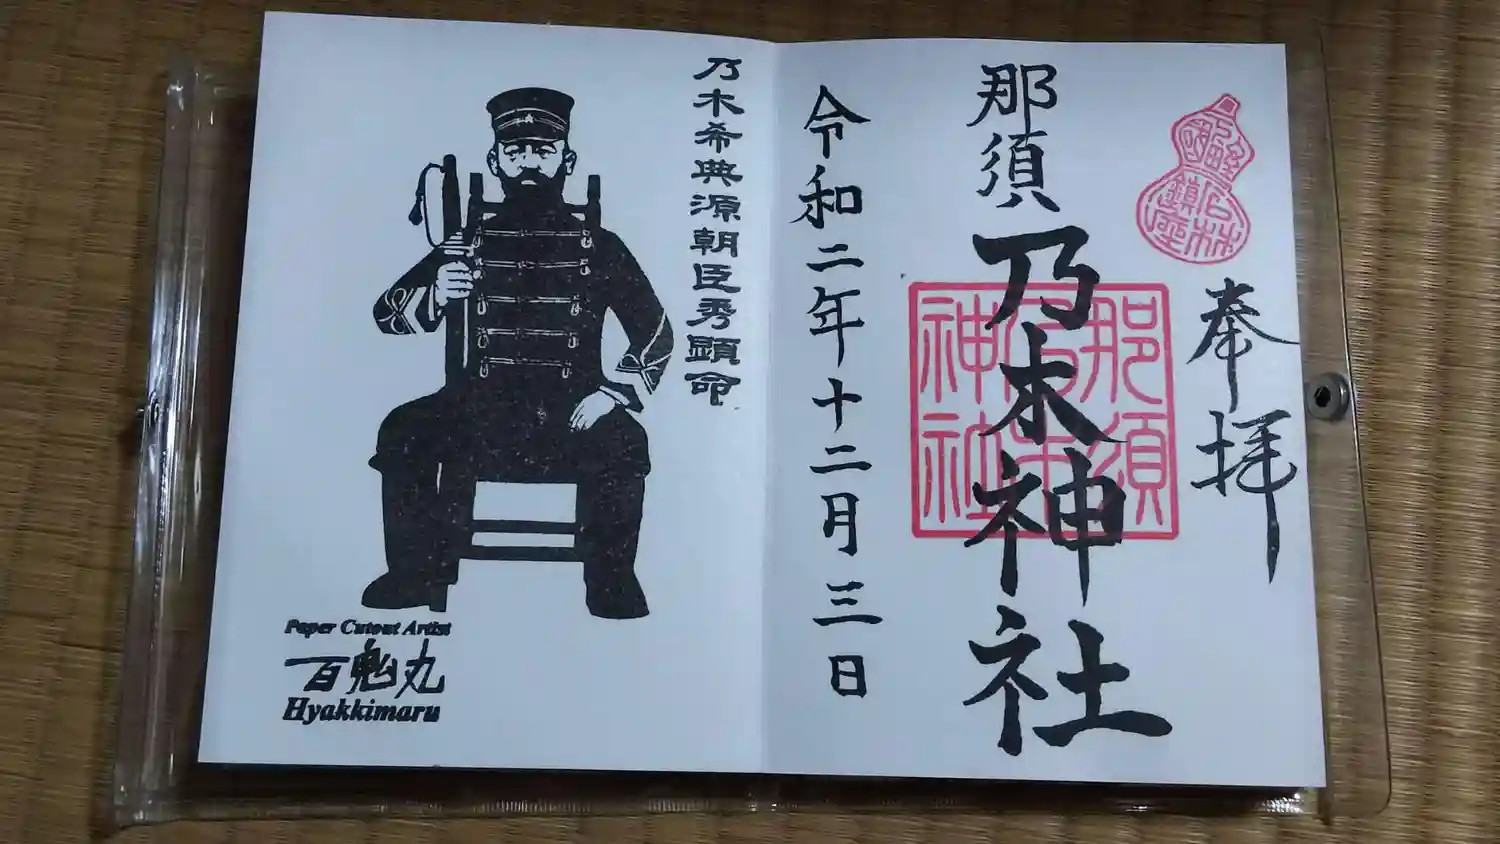 奉拝
石林
鎮座
那須乃木神社
那須
乃木
神社
令和二年十二月三日
乃木希典源朝臣秀顕命
Paper Cutout Artist
百鬼丸
Hyakkimaru